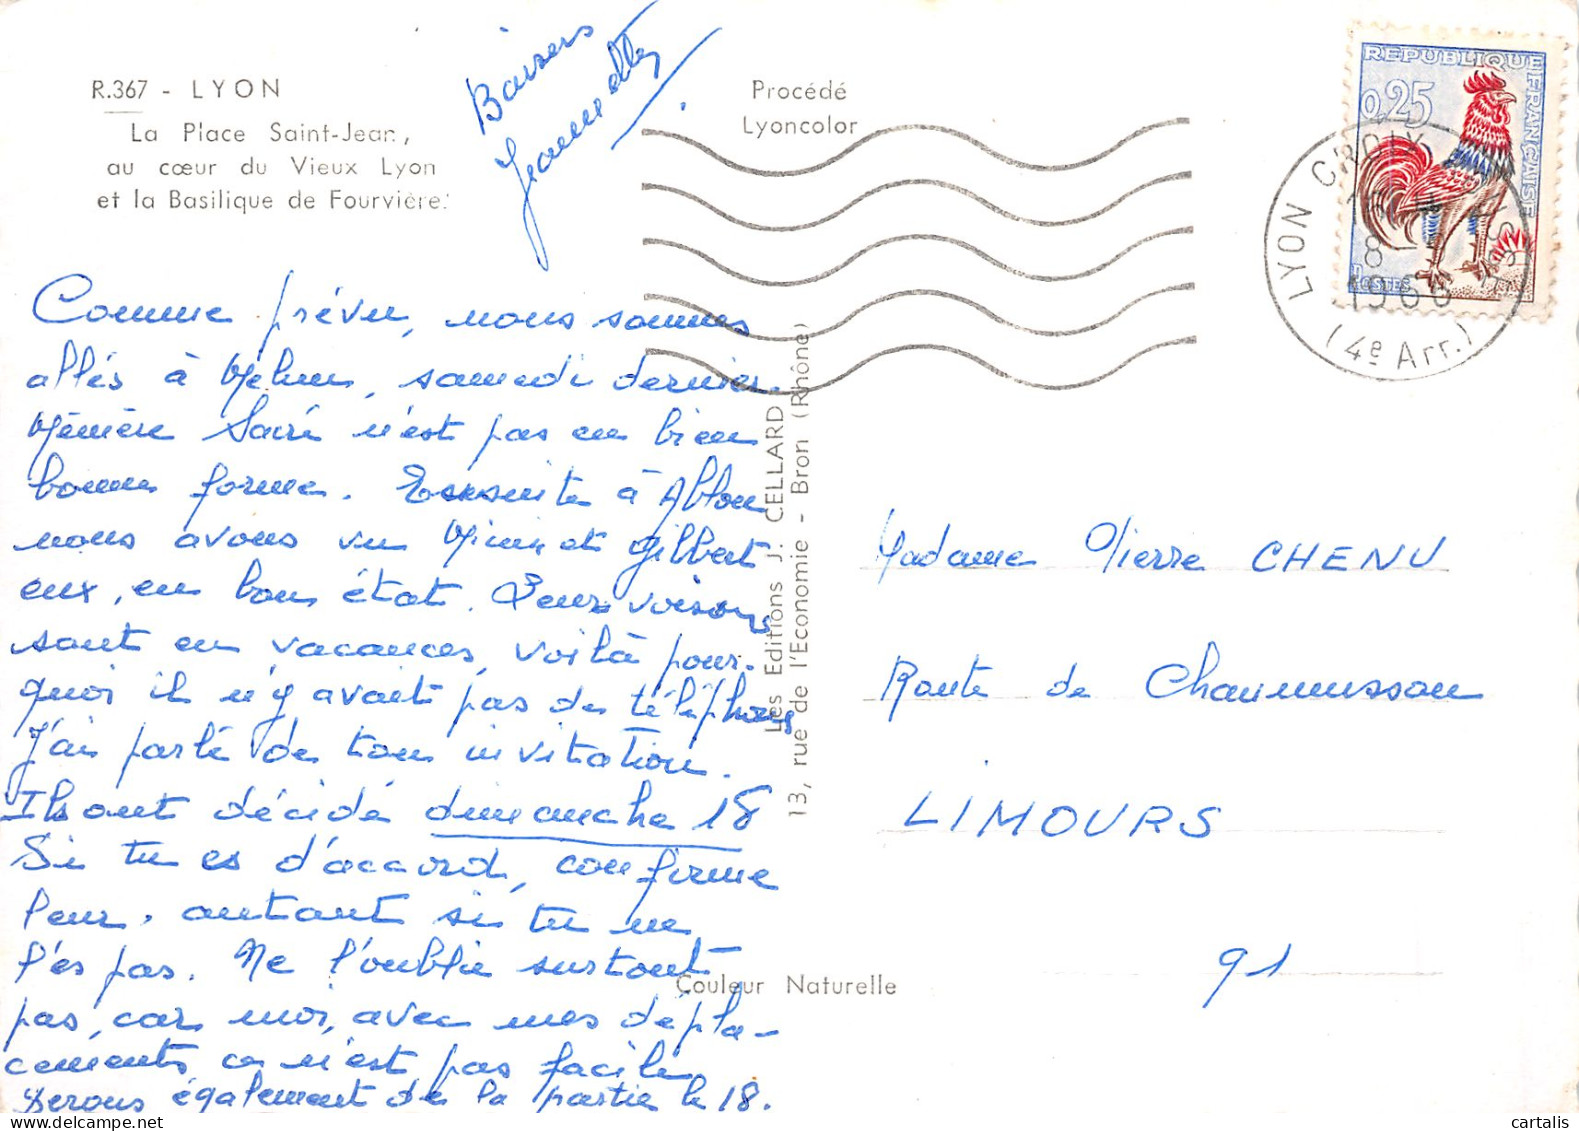 R.367 - LYON
La Place Saint-Jean,
au cœur du Vieux Lyon
et la Basilique de Fourvière.
Baisers
Procédé
Lyoncolor
REPUBLIQUE FRANÇAISE
0,25
POSTES
LYON CROIX
8
1966
(4e Arr.)
Comme prévu, nous sommes
allés à Melun, samedi dernier.
Mémère n'est pas en bien
bonne forme. Ensuite à Ablon
nous avons vu Mimi et Gilbert
eux, en bon état. Leurs voisons
sont en vacances, voilà pour-
quoi il n'y avait pas de téléphone
J'ai parlé de ton invitation.
Ils ont décidé dimanche 18
Si tu es d'accord, confirme
leur, autant si tu ne
l'es pas. Ne l'oublie surtout
pas, car moi, avec mes dépla-
cements ce n'est pas facile
Serons également de la partie le 18.
Les Editions J. CELLARD
13, rue de l'Economie - Bron (Rhône)
Couleur Naturelle
Madame Pierre CHENU
Route de Chaumusson
LIMOURS
91
cartalis | delcampe.net